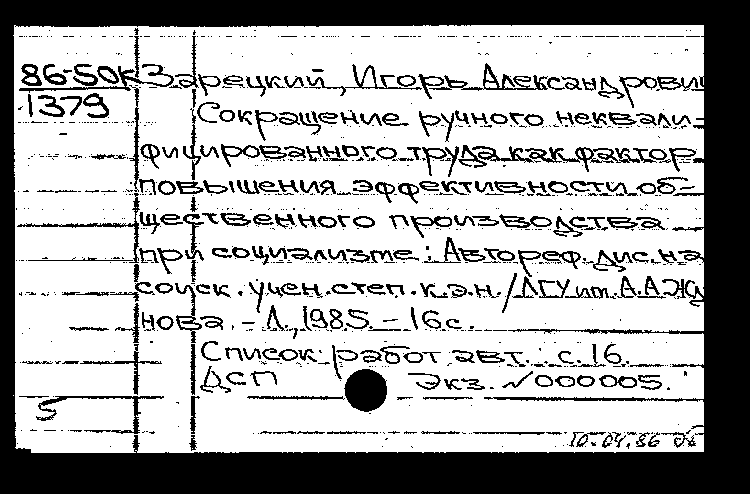 86-50К Зарецкий, Игорь Александрович
1379
Сокращение ручного неквали-
фицированного труда как фактор
повышения эффективности об-
щественного производства
при социализме : Автореф. дис. на
соиск. учен. степ. к.э.н. / ЛГУ им. А.А Жда
нова. – Л., 1985. – 16 с.
Список работ авт. : с. 16.
ДСП Экз. № 000005.
5
10.04.86